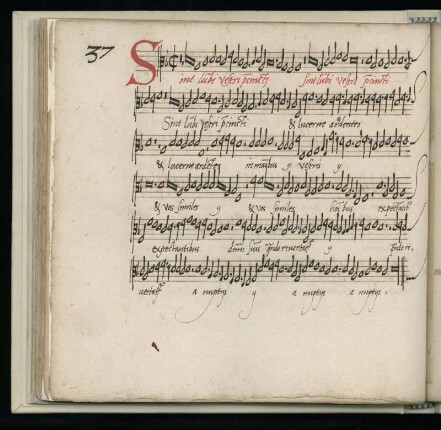 37
Sint lubi vestri precincti Sint lubi vestri precincti
Sint lubi vestri precincti & lucerne ardentes
& lucerne ardentes in manibus y vestris y
& vos similes y & vos similes hominibus expectantib
expectantibus dominum suum quando revertatur y quando re,
vertatur a nuptys y a nuptys a nuptys.